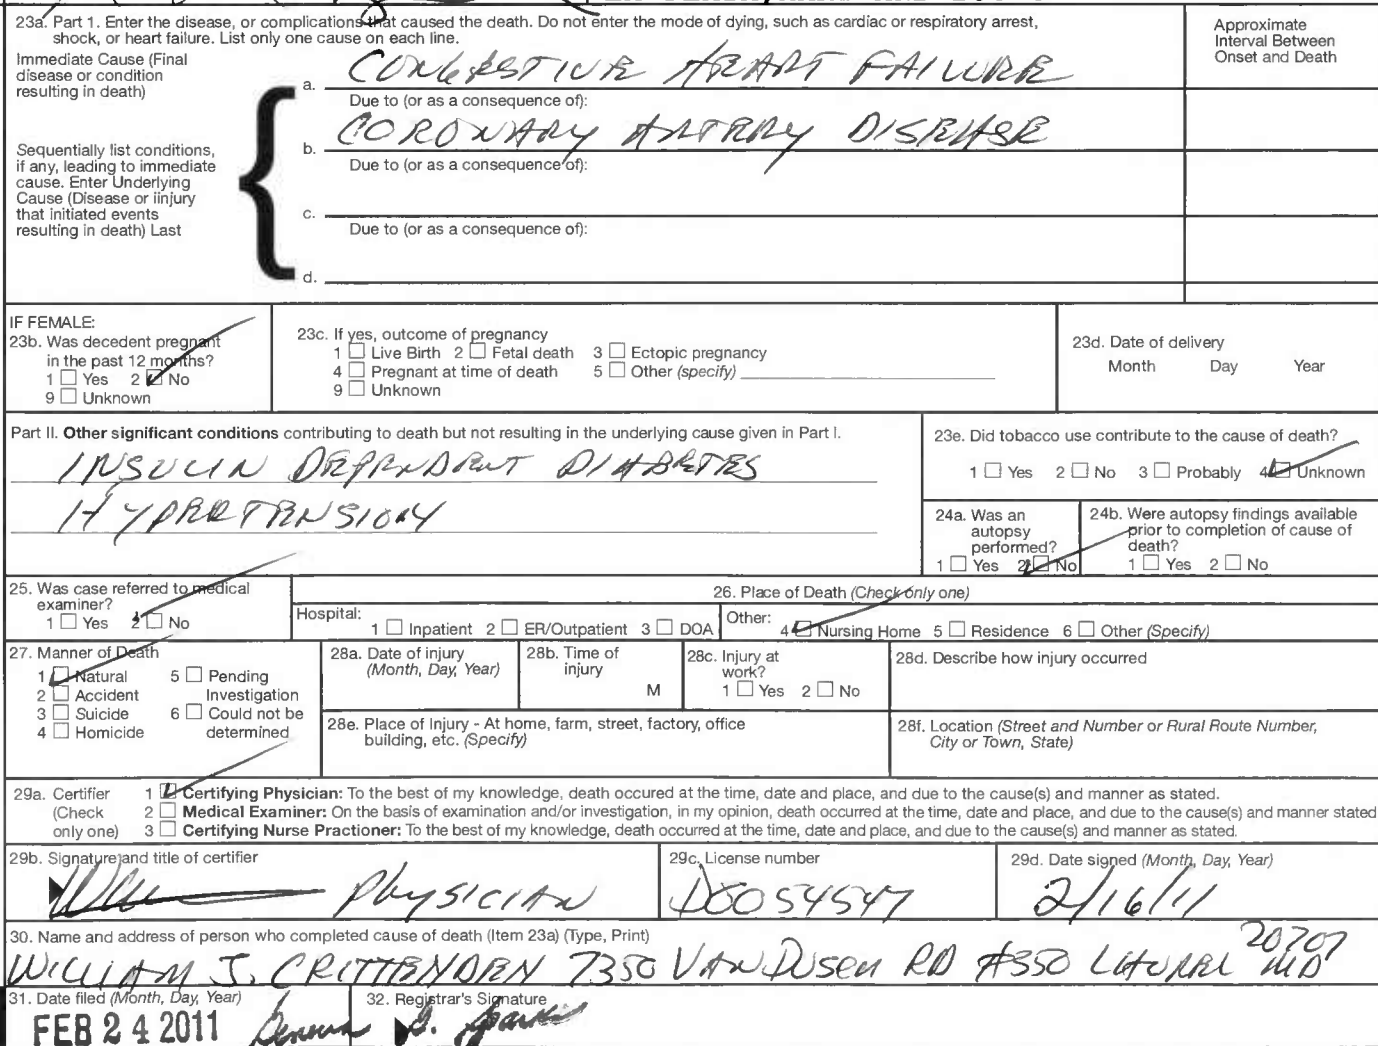 23a. Part 1. Enter the disease, or complications that caused the death. Do not enter the mode of dying, such as cardiac or respiratory arrest,
shock, or heart failure. List only one cause on each line.
Approximate
Interval Between
Onset and Death
Immediate Cause (Final
disease or condition
resulting in death)
a. CONGESTIVE HEART FAILURE
Due to (or as a consequence of):
Sequentially list conditions,
if any, leading to immediate
cause. Enter Underlying
Cause (Disease or iinjury
that initiated events
resulting in death) Last
b. CORONARY ARTERY DISEASE
Due to (or as a consequence of):
c.
Due to (or as a consequence of):
d.
IF FEMALE:
23b. Was decedent pregnant
in the past 12 months?
1 Yes 2 No
9 Unknown
23c. If yes, outcome of pregnancy
1 Live Birth 2 Fetal death 3 Ectopic pregnancy
4 Pregnant at time of death 5 Other (specify)
9 Unknown
23d. Date of delivery
Month Day Year
Part II. Other significant conditions contributing to death but not resulting in the underlying cause given in Part I.
INSULIN DEPENDENT DIABETES
HYPERTENSION
23e. Did tobacco use contribute to the cause of death?
1 Yes 2 No 3 Probably 4 Unknown
24a. Was an
autopsy
performed?
1 Yes 2 No
24b. Were autopsy findings available
prior to completion of cause of
death?
1 Yes 2 No
25. Was case referred to medical
examiner?
1 Yes 2 No
26. Place of Death (Check only one)
Hospital: 1 Inpatient 2 ER/Outpatient 3 DOA
Other: 4 Nursing Home 5 Residence 6 Other (Specify)
27. Manner of Death
1 Natural 5 Pending
2 Accident Investigation
3 Suicide 6 Could not be
4 Homicide determined
28a. Date of injury
(Month, Day, Year)
28b. Time of
injury
M
28c. Injury at
work?
1 Yes 2 No
28d. Describe how injury occurred
28e. Place of Injury - At home, farm, street, factory, office
building, etc. (Specify)
28f. Location (Street and Number or Rural Route Number,
City or Town, State)
29a. Certifier
(Check
only one)
1 Certifying Physician: To the best of my knowledge, death occured at the time, date and place, and due to the cause(s) and manner as stated.
2 Medical Examiner: On the basis of examination and/or investigation, in my opinion, death occurred at the time, date and place, and due to the cause(s) and manner stated
3 Certifying Nurse Practioner: To the best of my knowledge, death occurred at the time, date and place, and due to the cause(s) and manner as stated.
29b. Signature and title of certifier
PHYSICIAN
29c. License number
D0054547
29d. Date signed (Month, Day, Year)
2/16/11
30. Name and address of person who completed cause of death (Item 23a) (Type, Print)
WILLIAM J. CRITTENDEN 7350 VAN DUSEN RD #350 LAURAL MD 20707
31. Date filed (Month, Day, Year)
FEB 24 2011
32. Registrar's Signature